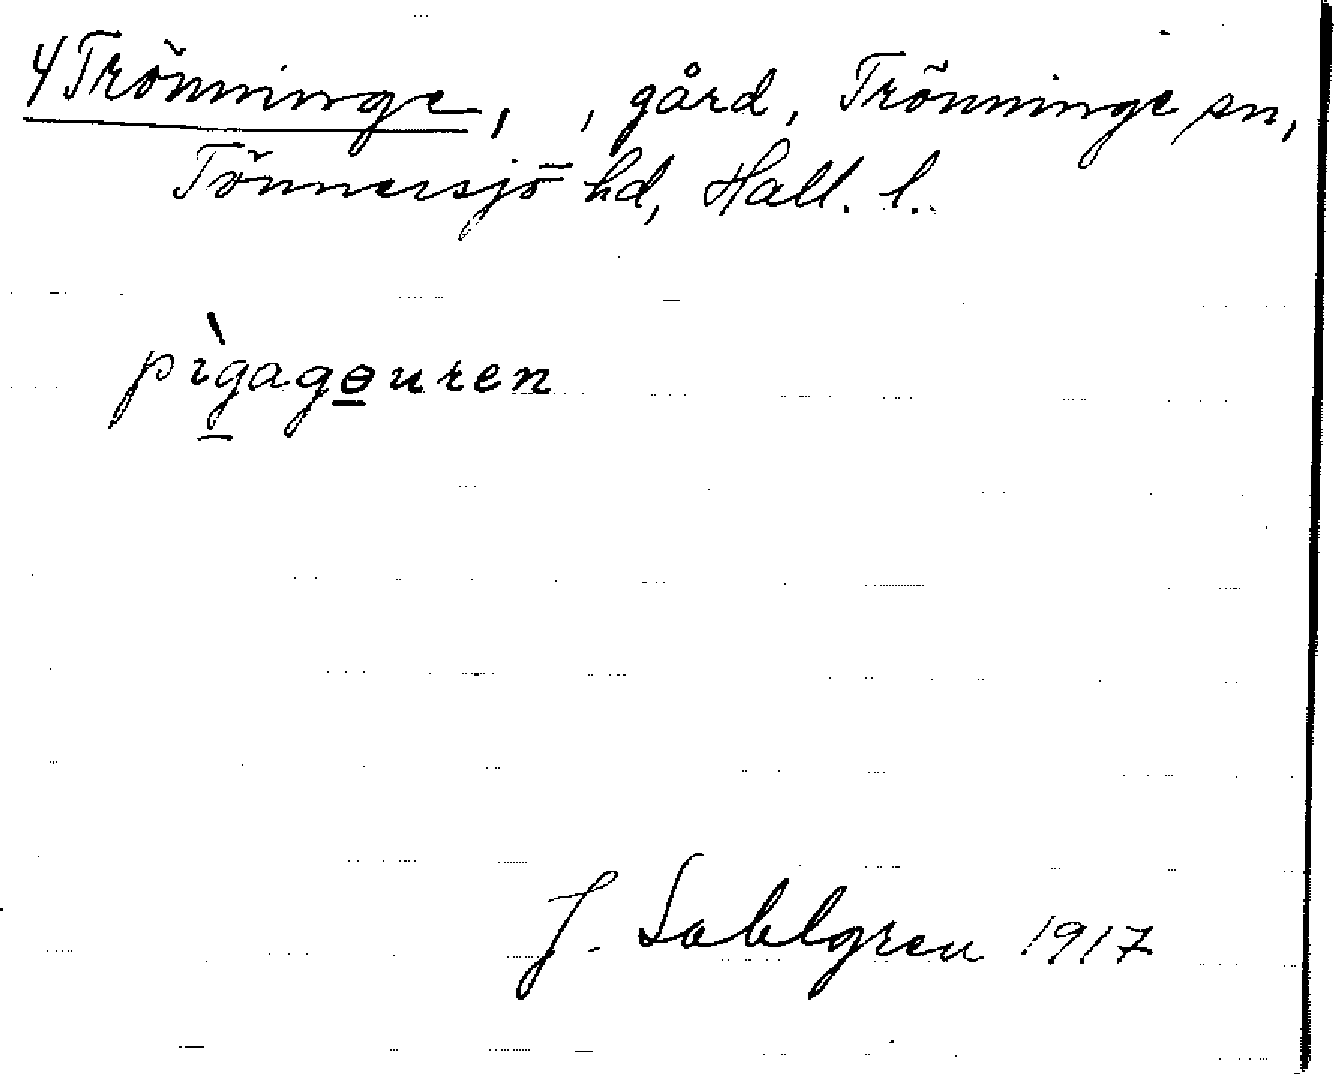 4 Trönninge, , gård, Trönninge sn,
Tönnersjö hd, Hall. l.
pìgagɵuren
J. Sahlgren 1917